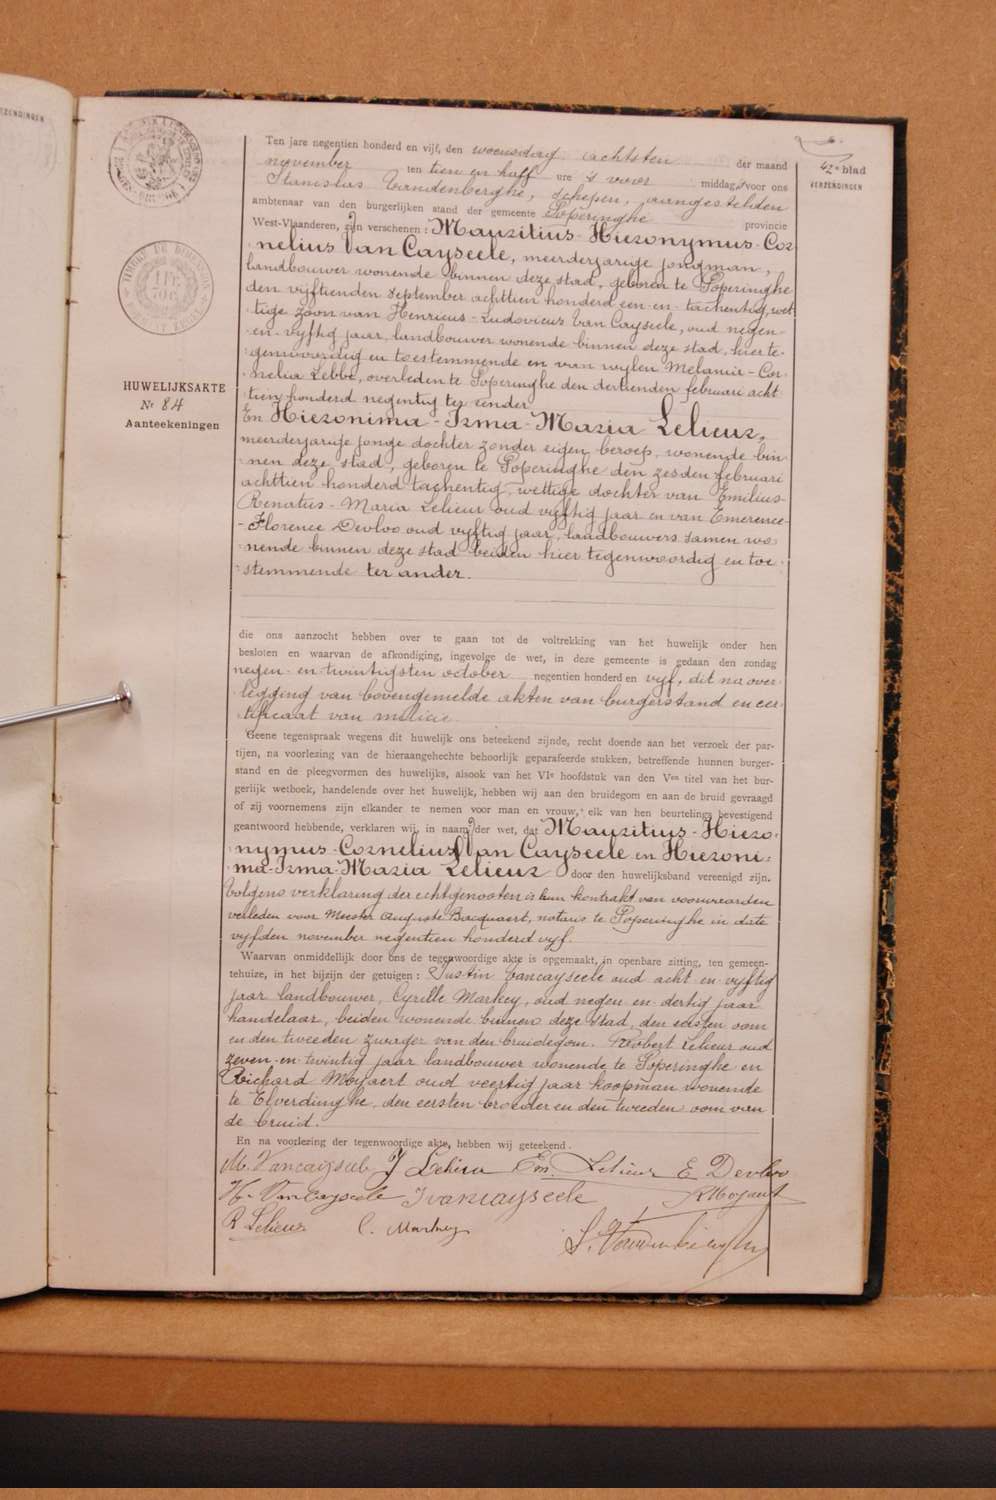 EZENDINGEN
42e blad
VERZENDINGEN
TIMBRE DE DIMENSION
1 FR.
HUWELIJKSAKTE
No 84
Aanteekeningen
Ten jare negentien honderd en vijf, den woensdag achtsten der maand
november ten tien en half ure 's voor middag, voor ons
Stanislas Vandenberghe, schepen, aangestelden
ambtenaar van den burgerlijken stand der gemeente Poperinghe provincie
West-Vlaanderen, zijn verschenen : Mauritius-Hieronymus-Cor-
nelius Van Cayseele, meerderjarige jongman,
landbouwer wonende binnen deze stad, geboren te Poperinghe
den vijftienden september achttien honderd een en tachentig, wet-
tige zoon van Henricus-Ludovicus Van Cayseele, oud negen-
en-vyftig jaar, landbouwer wonende binnen deze stad, hier te-
genwoordig en toestemmende en van wylen Melanie-Cor-
nelia Lebbe, overleden te Poperinghe den dertienden februari acht
tien honderd negentig ter eender
En Hieronima-Irma-Maria Lelieur,
meerderjarige jonge dochter zonder eigen beroep, wonende bin-
nen deze stad, geboren te Poperinghe den zesden februari
achttien honderd tachentig, wettige dochter van Emilius-
Renatus-Maria Lelieur oud vyftig jaar en van Emerence-
Florence Devloo oud vyftig jaar, landbouwers samen wo-
nende binnen deze stad beiden hier tegenwoordig en toe-
stemmende ter ander.
die ons aanzocht hebben over te gaan tot de voltrekking van het huwelijk onder hen
besloten en waarvan de afkondiging, ingevolge de wet, in deze gemeente is gedaan den zondag
negen-en-twintigsten october negentien honderd en vyf, dit na over-
legging van bovengemelde akten van burgerstand en cer-
tificaat van milicie
Geene tegenspraak wegens dit huwelijk ons beteekend zijnde, recht doende aan het verzoek der par-
tijen, na voorlezing van de hieraangehechte behoorlijk geparafeerde stukken, betreffende hunnen burger-
stand en de pleegvormen des huwelijks, alsook van het VIe hoofdstuk van den Ven titel van het bur-
gerlijk wetboek, handelende over het huwelijk, hebben wij aan den bruidegom en aan de bruid gevraagd
of zij voornemens zijn elkander te nemen voor man en vrouw, elk van hen beurtelings bevestigend
geantwoord hebbende, verklaren wij, in naam der wet, dat Mauritius-Hiero-
nymus-Cornelius Van Cayseele en Hieroni-
ma-Irma-Maria Lelieur door den huwelijksband vereenigd zijn.
Volgens verklaring der echtgenooten is hun kontrakt van voorwaarden
verleden voor Meester Auguste Bacquaert, notaris te Poperinghe in date
vyfden november negentien honderd vyf.
Waarvan onmiddellijk door ons de tegenwoordige akte is opgemaakt, in openbare zitting, ten gemeen-
tehuize, in het bijzijn der getuigen : Justin Vancayseele oud acht-en-vyftig
jaar landbouwer, Cyrille Markey, oud negen-en-dertig jaar
handelaar, beiden wonende binnen deze stad, den eersten oom
en den tweeden zwager van den bruidegom. Robert Lelieur oud
zeven-en-twintig jaar landbouwer wonende te Poperinghe en
Richard Moyaert oud veertig jaar koopman wonende
te Elverdinghe, den eersten broeder en den tweeden oom van
de bruid.
En na voorlezing der tegenwoordige akte, hebben wij geteekend.
M. Vancayseele Em. Lelieur E Devloo
H. VanCayseele J vancayseele R Moyaert
R Lelieur C. Markey
S. Vandenberghe